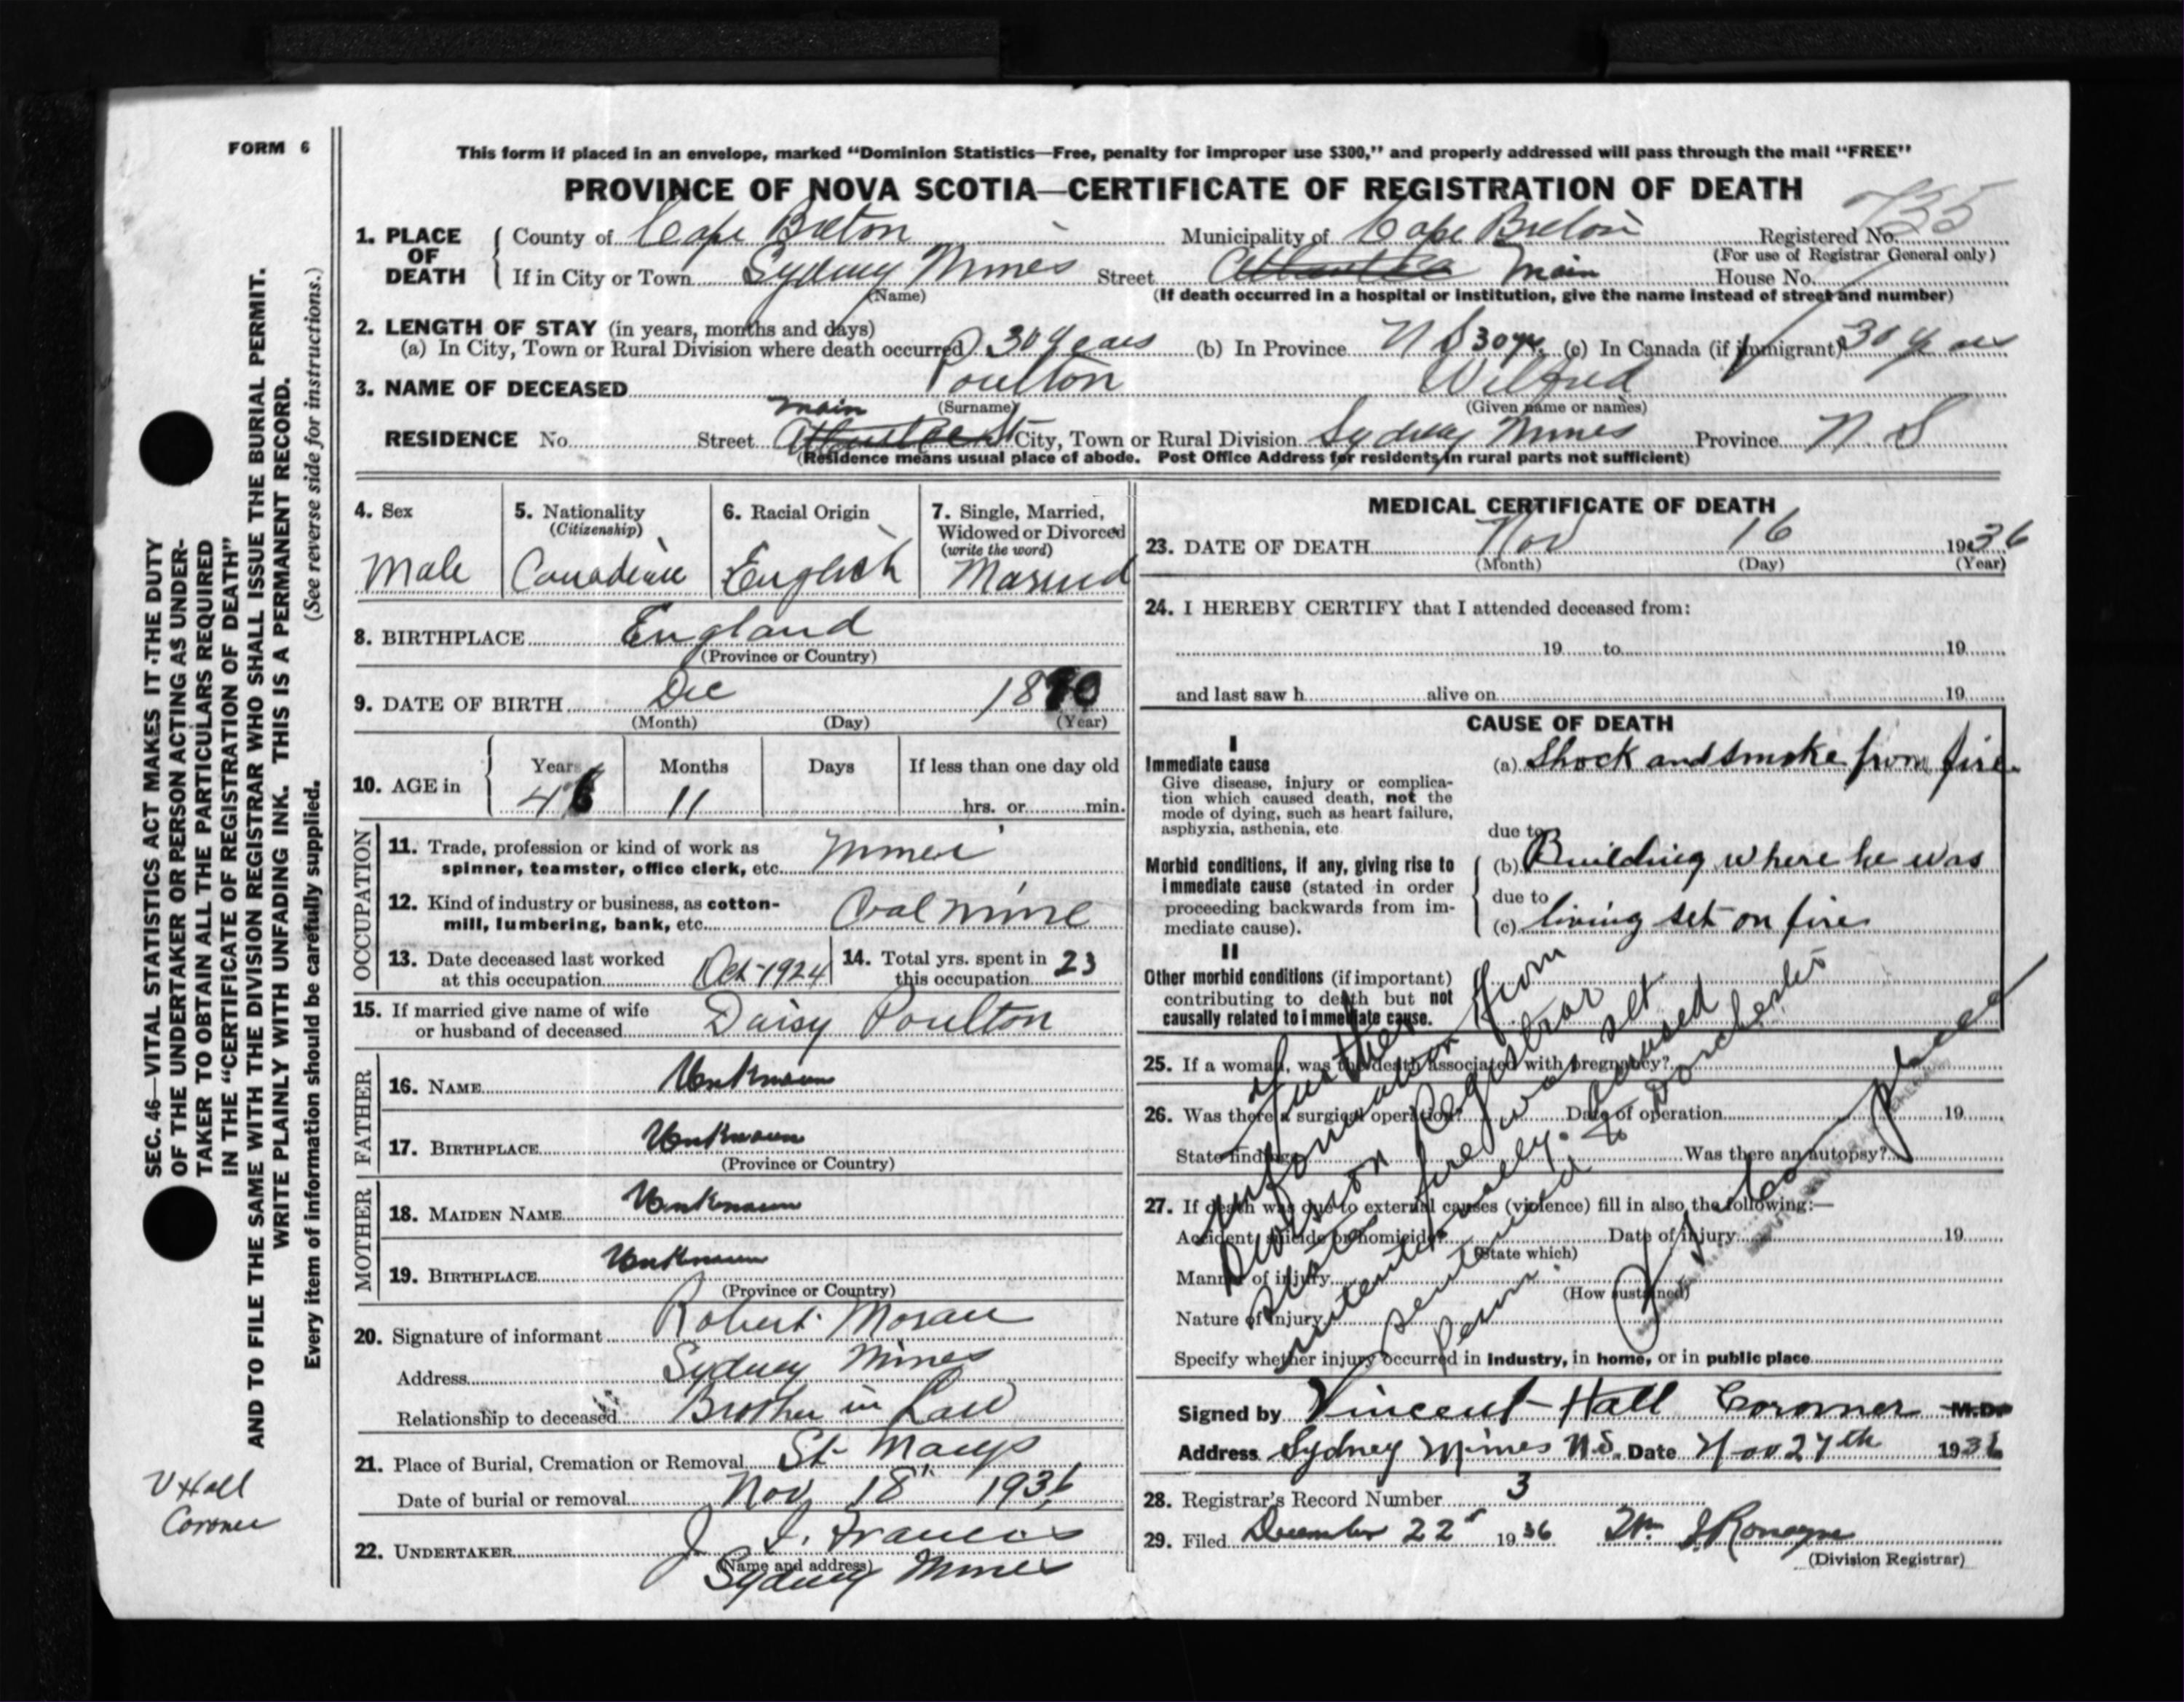 FORM 6
This form if placed in an envelope, marked "Dominion Statistics—Free, penalty for improper use $300," and properly addressed will pass through the mail "FREE"
PROVINCE OF NOVA SCOTIA—CERTIFICATE OF REGISTRATION OF DEATH
735
1. PLACE OF DEATH { County of Cape Breton Municipality of Cape Breton Registered No.
(For use of Registrar General only)
If in City or Town Sydney Mines Street Atlantic Main House No.
(Name) (If death occurred in a hospital or institution, give the name instead of street and number)
2. LENGTH OF STAY (in years, months and days)
(a) In City, Town or Rural Division where death occurred 30 years (b) In Province N S 30 yr. (c) In Canada (if immigrant) 30 years
3. NAME OF DECEASED Poulton Wilfred
(Surname) (Given name or names)
main
RESIDENCE No. Street Atlantic St City, Town or Rural Division Sydney Mines Province N S
(Residence means usual place of abode. Post Office Address for residents in rural parts not sufficient)
4. Sex
Male
5. Nationality
(Citizenship)
Canadian
6. Racial Origin
English
7. Single, Married,
Widowed or Divorced
(write the word)
Married
8. BIRTHPLACE England
(Province or Country)
9. DATE OF BIRTH Dec 1890
(Month) (Day) (Year)
10. AGE in { Years Months Days If less than one day old
46 11 hrs. or min.
OCCUPATION
11. Trade, profession or kind of work as
spinner, teamster, office clerk, etc. Miner
12. Kind of industry or business, as cotton-
mill, lumbering, bank, etc. Coal mine
13. Date deceased last worked
at this occupation Oct-1924
14. Total yrs. spent in
this occupation 23
15. If married give name of wife
or husband of deceased Daisy Poulton
FATHER
16. NAME Unknown
17. BIRTHPLACE Unknown
(Province or Country)
MOTHER
18. MAIDEN NAME Unknown
19. BIRTHPLACE Unknown
(Province or Country)
20. Signature of informant Robert Moran
Address Sydney Mines
Relationship to deceased Brother in Law
21. Place of Burial, Cremation or Removal St Marys
Date of burial or removal Nov 18 1936
22. UNDERTAKER J. J. Francis
(Name and address)
Sydney Mines
MEDICAL CERTIFICATE OF DEATH
23. DATE OF DEATH Nov 16 1936
(Month) (Day) (Year)
24. I HEREBY CERTIFY that I attended deceased from:
19 to 19
and last saw h alive on 19
CAUSE OF DEATH
I
Immediate cause
Give disease, injury or complica-
tion which caused death, not the
mode of dying, such as heart failure,
asphyxia, asthenia, etc
(a) Shock and smoke from fire
due to
Morbid conditions, if any, giving rise to
immediate cause (stated in order
proceeding backwards from im-
mediate cause).
(b) Building where he was
due to
(c) living set on fire
II
Other morbid conditions (if important)
contributing to death but not
causally related to immediate cause.
25. If a woman, was the death associated with pregnancy?
26. Was there a surgical operation? Date of operation 19
State findings Was there an autopsy?
27. If death was due to external causes (violence) fill in also the following:—
Accident, suicide or homicide? Date of injury 19
(State which)
Manner of injury
(How sustained)
Nature of injury
Specify whether injury occurred in industry, in home, or in public place
Further
information from
Division Registrar
states fire was set
intentionally. Accused
sentenced to Dorchester
Penn.
Signed by Vincent Hall Coronner M.D.
Address Sydney Mines N.S. Date Nov 27th 1936
28. Registrar's Record Number 3
29. Filed December 22 1936 Wm J Ronayne
(Division Registrar)
SEC. 46—VITAL STATISTICS ACT MAKES IT THE DUTY
OF THE UNDERTAKER OR PERSON ACTING AS UNDER-
TAKER TO OBTAIN ALL THE PARTICULARS REQUIRED
IN THE "CERTIFICATE OF REGISTRATION OF DEATH"
AND TO FILE THE SAME WITH THE DIVISION REGISTRAR WHO SHALL ISSUE THE BURIAL PERMIT.
WRITE PLAINLY WITH UNFADING INK. THIS IS A PERMANENT RECORD.
Every item of information should be carefully supplied. (See reverse side for instructions.)
V Hall
Coroner